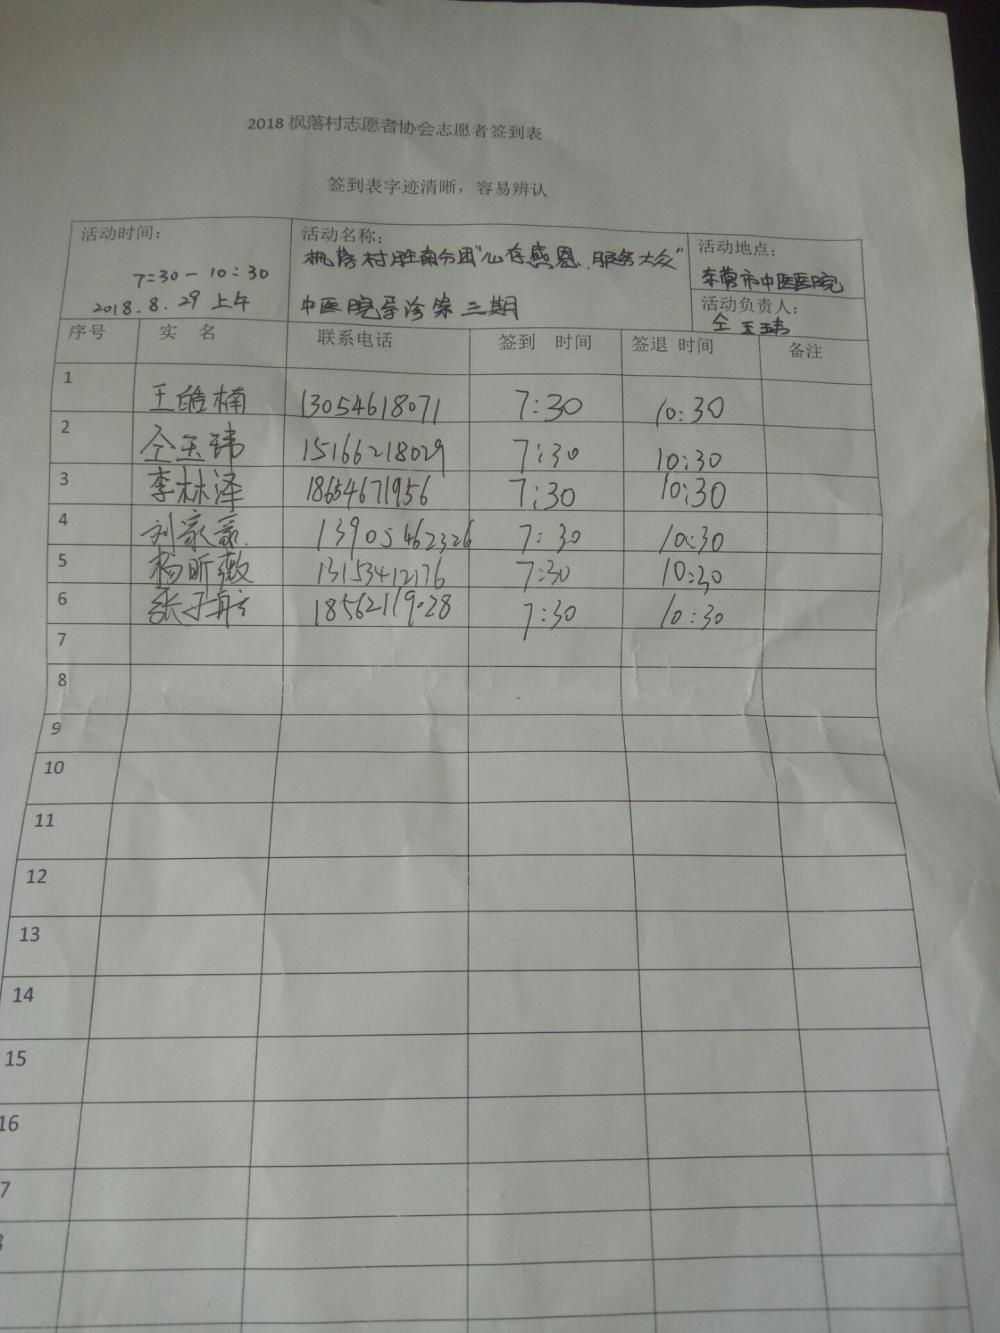 2018 枫落村志愿者协会志愿者签到表
签到表字迹清晰，容易辨认
活动时间：
7:30 — 10:30
2018.8.29 上午
活动名称：
枫落村胜南分团“心存感恩、服务大众”
中医院导诊第三期
活动地点：
东营市中医医院
活动负责人：
仝玉玮
序号 实 名 联系电话 签到 时间 签退 时间 备注
1 王皓楠 13054618071 7:30 10:30
2 仝玉玮 15166218029 7:30 10:30
3 李林泽 18654671956 7:30 10:30
4 刘家豪 13905462326 7:30 10:30
5 杨昕薇 13153412176 7:30 10:30
6 张子 18562119028 7:30 10:30
7
8
9
10
11
12
13
14
15
16
7